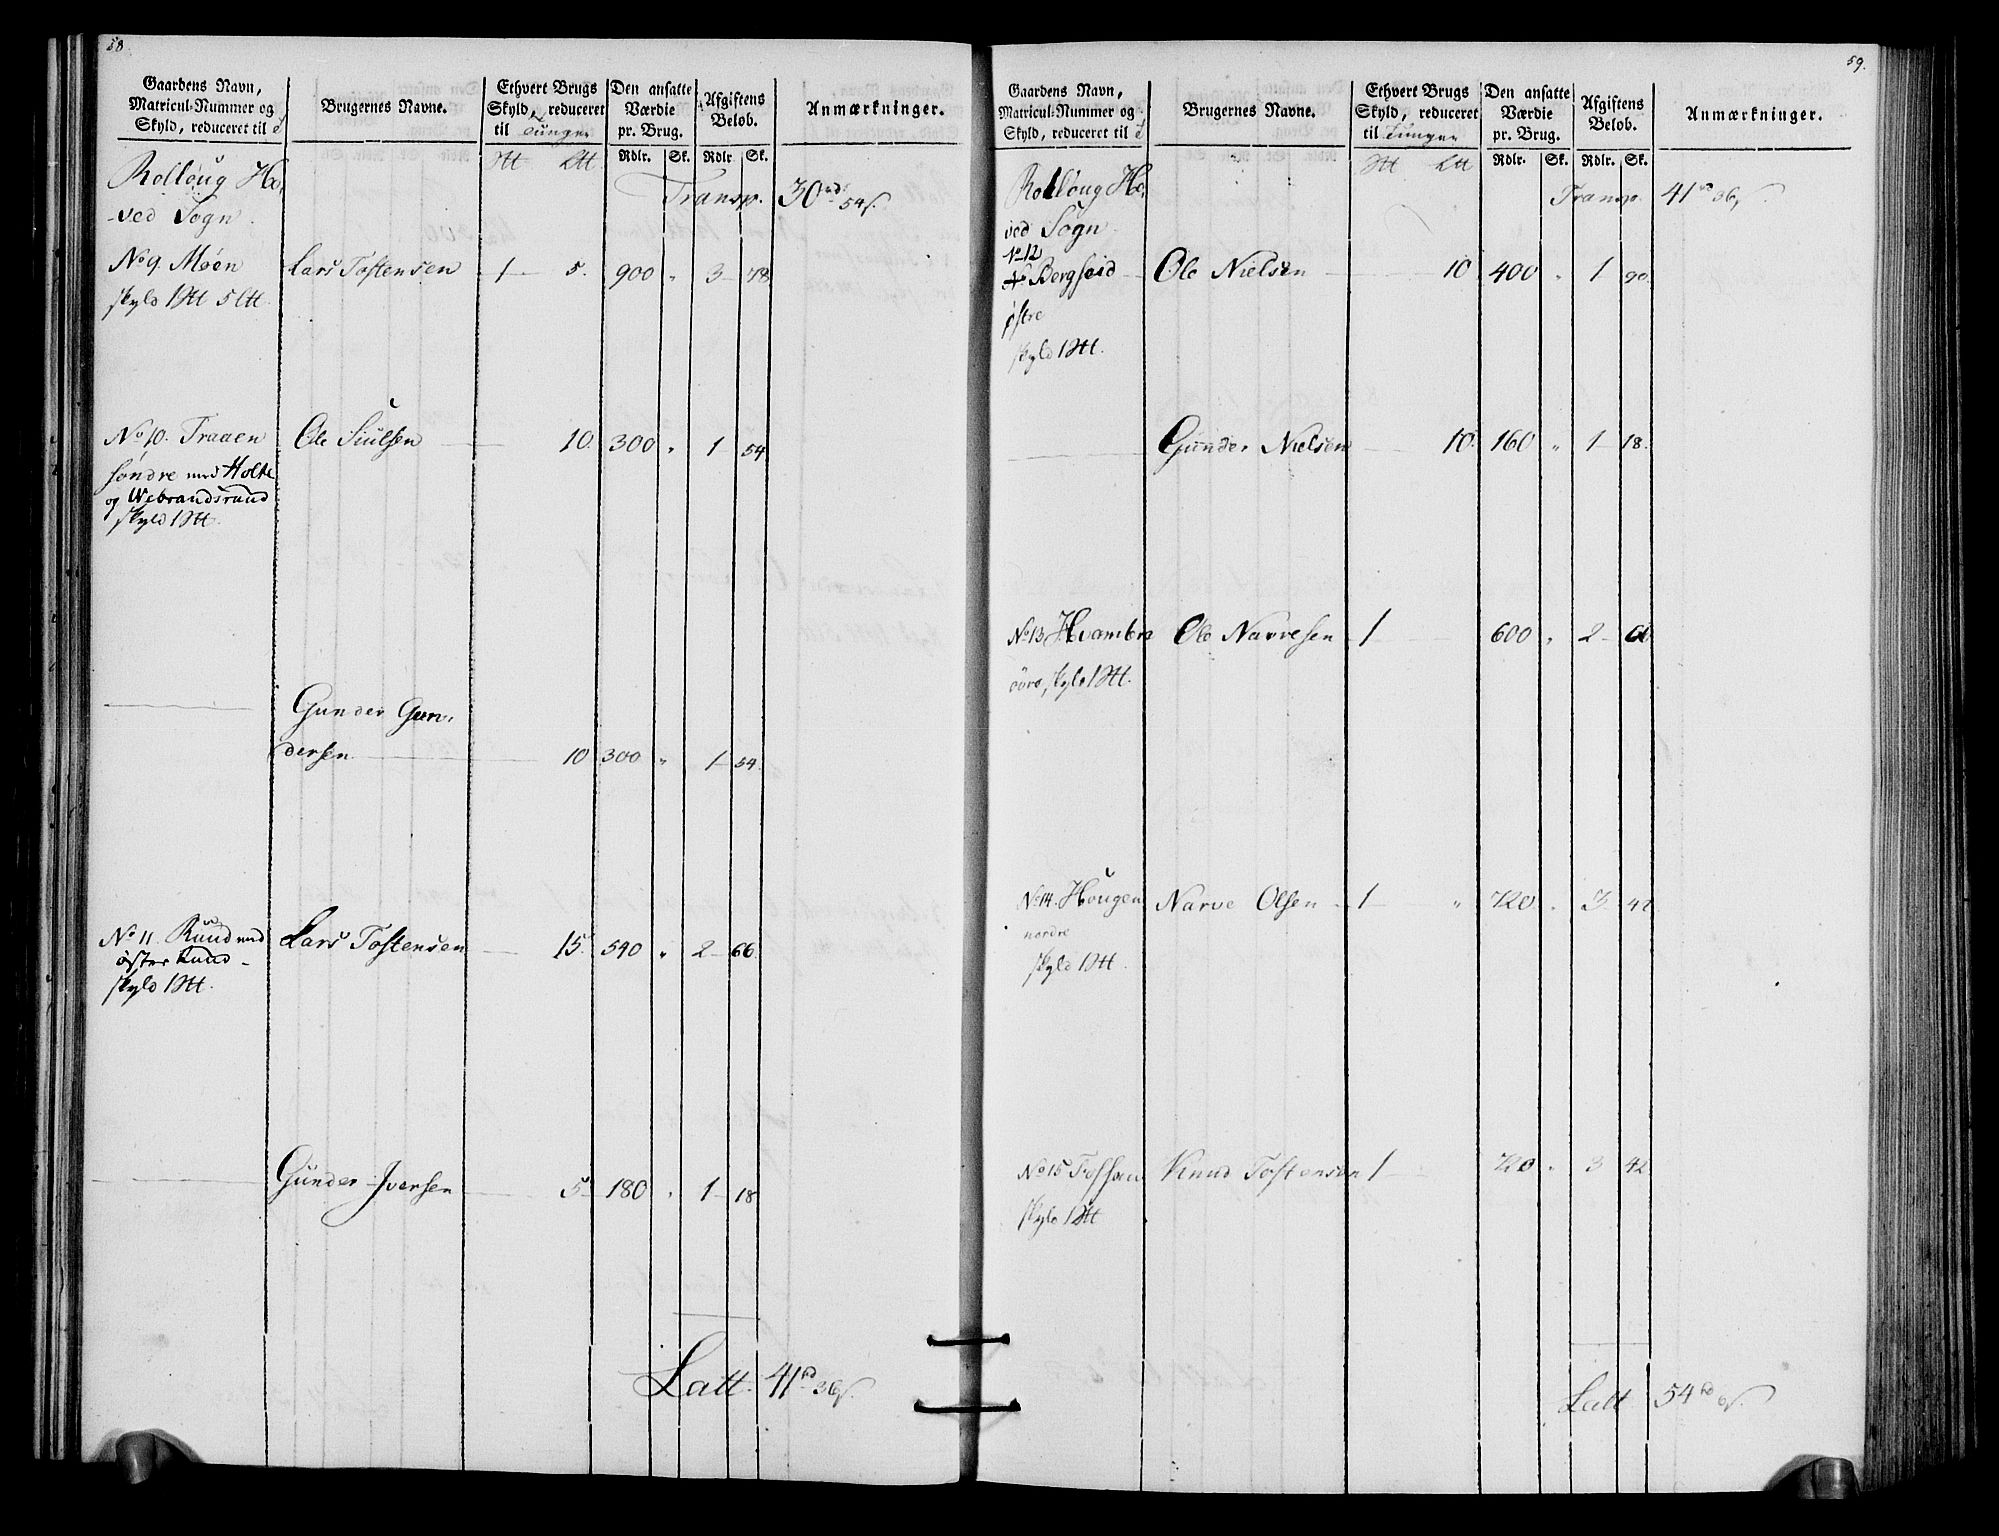 58.
Gaardens Navn, Matricul-Nummer og Skyld, reduceret til
Brugernes Navne.
Ethvert Brugs Skyld, reduceret til Tunger
Den ansatte Værdie pr. Brug.
Afgiftens Beløb.
Anmærkninger.
Rdlr. Sk. Rdlr Sk.
Rolloug Ho-
ved Sogn.
Transp. 30 rd 54 s.
No 9. Moen Lars Tostensen 1 5. 900 " 3 78.
skyld 1 Htt 5 Ltt.
No 10. Traaen Ole Siulsen 10. 300 " 1 54
søndre med Holte
og Webrandsruud
skyld 1 Htt.
Gunder Gun-
dersen 10 300 " 1 54.
No 11. Ruud med Lars Tostensen 15. 540 " 2 66.
øster Ruud
skyld 1 Htt.
Gunder Iversen 5. 180 " 1 18
Latt. 41 rd 36 s.
59.
Gaardens Navn, Matricul-Nummer og Skyld, reduceret til
Brugernes Navne.
Ethvert Brugs Skyld, reduceret til Tunger
Den ansatte Værdie pr. Brug.
Afgiftens Beløb.
Anmærkninger.
Rdlr. Sk. Rdlr. Sk.
Rolloug Ho-
ved Sogn.
Transp. 41 rd 36 s.
No 12
Bergseid Ole Nielsen 10 400 " 1 90.
østre
skyld 1 Htt.
Gunder Nielsen 10. 160 " 1 18.
No 13 Hvambra Ole Narvesen 1 600 " 2
øvre, skyld 1 Htt.
No 14. Hougen Narve Olsen 1 " 720 " 3 42
nordre
skyld 1 Htt.
No 15 Knud Tostensen 1 720 " 3 42
skyld 1 Htt
Latt 54 rd 6 s.